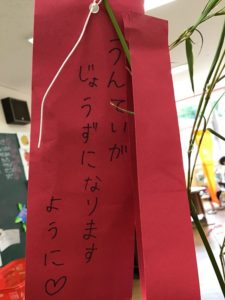 うんていが
じょうずになります
ように♡